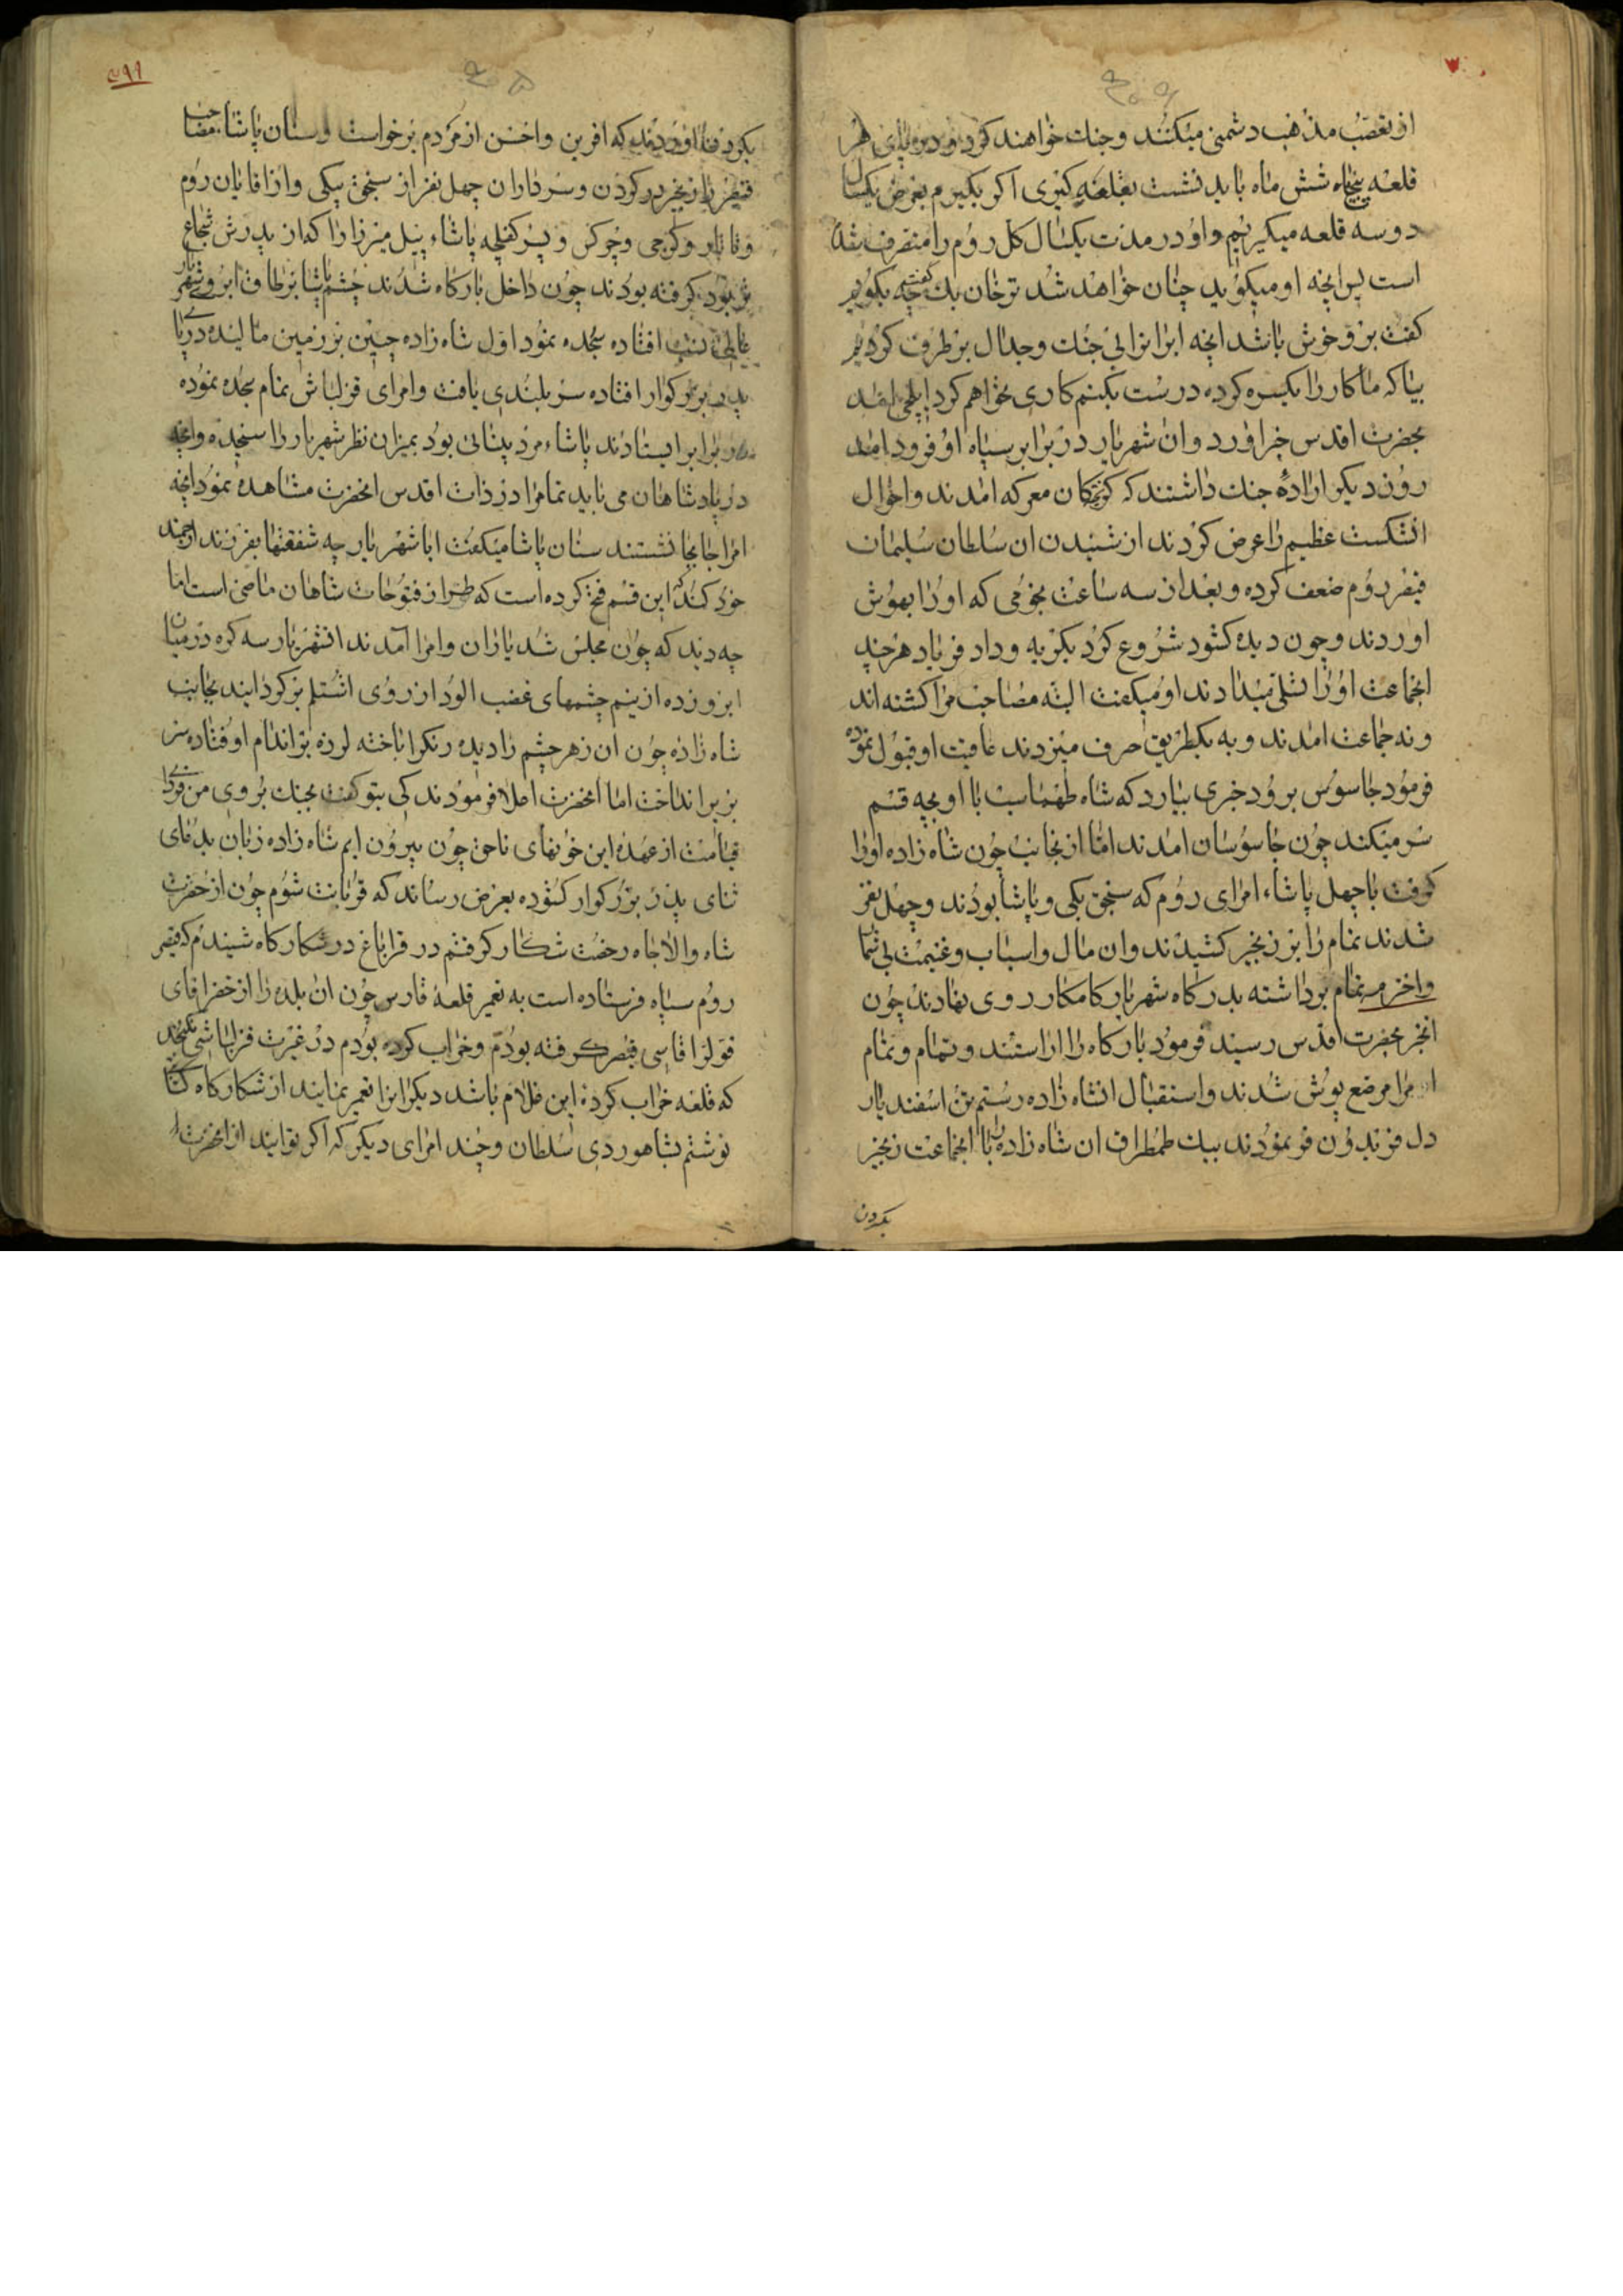 از تعصب مذهب دشمنی میکنند و جنک خواهند کرد و در پای هر
قلعه پنجاه شش ماه باید نشست بقلعه کیری اکر بکیریم بعرض یکسال
دو سه قلعه میکیریم و او در مدت یکسال کل روم را متصرف شده
است پس انچه او میکوید چنان خواهد شد ترخان بک کفت چه بکویم
کفت برو خوش باشد انچه ابرانرا بی جنک و جدال بر طرف کردیم
بیا که ما کار را یکسره کرده درست بکنیم کاری نخواهم کرد ایلچی امد
بحضرت اقدس خبر اورد و ان شهریار در برابر سپاه او فرود امد
روز دیکر اراده جنک داشتند که کریختکان معرکه امدند و احوال
ان شکست عظیم را عرض کردند از شنیدن ان سلطان سلیمان
قیصر روم ضعف کرده و بعد از سه ساعت نجومی که او را بهوش
اوردند و چون دیده کشود شروع کرد بکریه و داد فریاد هر چند
انجماعت او را تسلی میدادند او میکفت البته مصاحب مرا کشته اند
و نه جماعت امدند و به یکطریق حرف میزدند عاقبت او قبول نموده
فرمود جاسوس برود خبری بیارد که شاه طهماسب با او بچه قسم
سر میکند چون جاسوسان امدند اما از نجانب چون شاه زاده او را
کرفت با چهل پاشا، امرای روم که سنجق بکی و پاشا بودند و چهل نفر
شدند تمام را بز زنجیر کشیدند و ان مال و اسباب و غنیمت بی شما
واخرمه تمام برداشته بدرکاه شهریار کامکار روی نهادند چون
انخبر بحضرت اقدس رسید فرمود بارکاه را اراستند و تمام و تمام
امرا مرضع پوش شدند و استقبال انشاه زاده رستم تن اسفندیار
دل فریدون فر نمودند بیک طمطراق ان شاه زاده با انجماعت زنجیر
بکردن
بکردن اوردند که افرین و احسن از مردم برخواست و سنان پاشا مصاحب
قیصر را زنجیر بر کردن و سرداران چهل نفر از سنجق بیکی و از اقایان روم
و تاتار و کرجی و چرکس و پسر کفیله پاشا، پیل میرزا را که از پدرش شجاع
تر بود کرفته بودند چون داخل بارکاه شدند چشم پاشا بر طاق ابروی شهریار
افتاده سجده نمود اول شاه زاده جبین بر زمین مالیده در پای
پدر بزرکوار افتاده سر بلندی یافت و امرای قزلباش تمام سجده نموده
در برابر ایستادند پاشاء مرد بینائی بود بمیزان نظر شهریار را سنجیده و انچه
در پادشاهان می باید تمامرا در ذات اقدس انحضرت مشاهده نمود انچه
امرا جابجا نشستند سنان پاشا میکفت ایا شهریار چه شفقتها بفرزند ارجمند
خود کند که این قسم فتح کرده است که طراز فتوحات شاهان ماضی است اما
چه دید که چون مجلس شد یاران و امرا آمدند انشهریار سه کره در میان
ابرو زده از نیم چشمهای غضب الود از روی اشتلم بر کردانید بجانب
شاه زاده چون ان زهر چشم را دیده رنکرا باخته لرزه بر اندام او فتاده سر
بزیر انداخت اما انحضرت اصلا فرمودند کی بتو کفت بجنک بروی من فردای
قیامت از عهده این خونهای ناحق چون بیرون ایم شاه زاده زبان بدعای
ثنای پدر بزرکوار کشوده بعرض رساند که قربانت شوم چون از حضرت
شاه والا جاه رخصت شکار کرفتم در قراباغ در شکارکاه شنیدم که قیصر
روم سپاه فرستاده است به تعمیر قلعه قارس چون ان بلده را از خضر اقای
قولر اقاسی قیصر کرفته بودم و خراب کرده بودم در غیرت قزلباشی نکنجید
که قلعه خراب کرده این غلام باشد دیکر انرا تعمیر نمایند از شکارکاه کتابتی
نوشتم بشاهوردی سلطان و چند امرای دیکر که اکر توانید از انحضرت